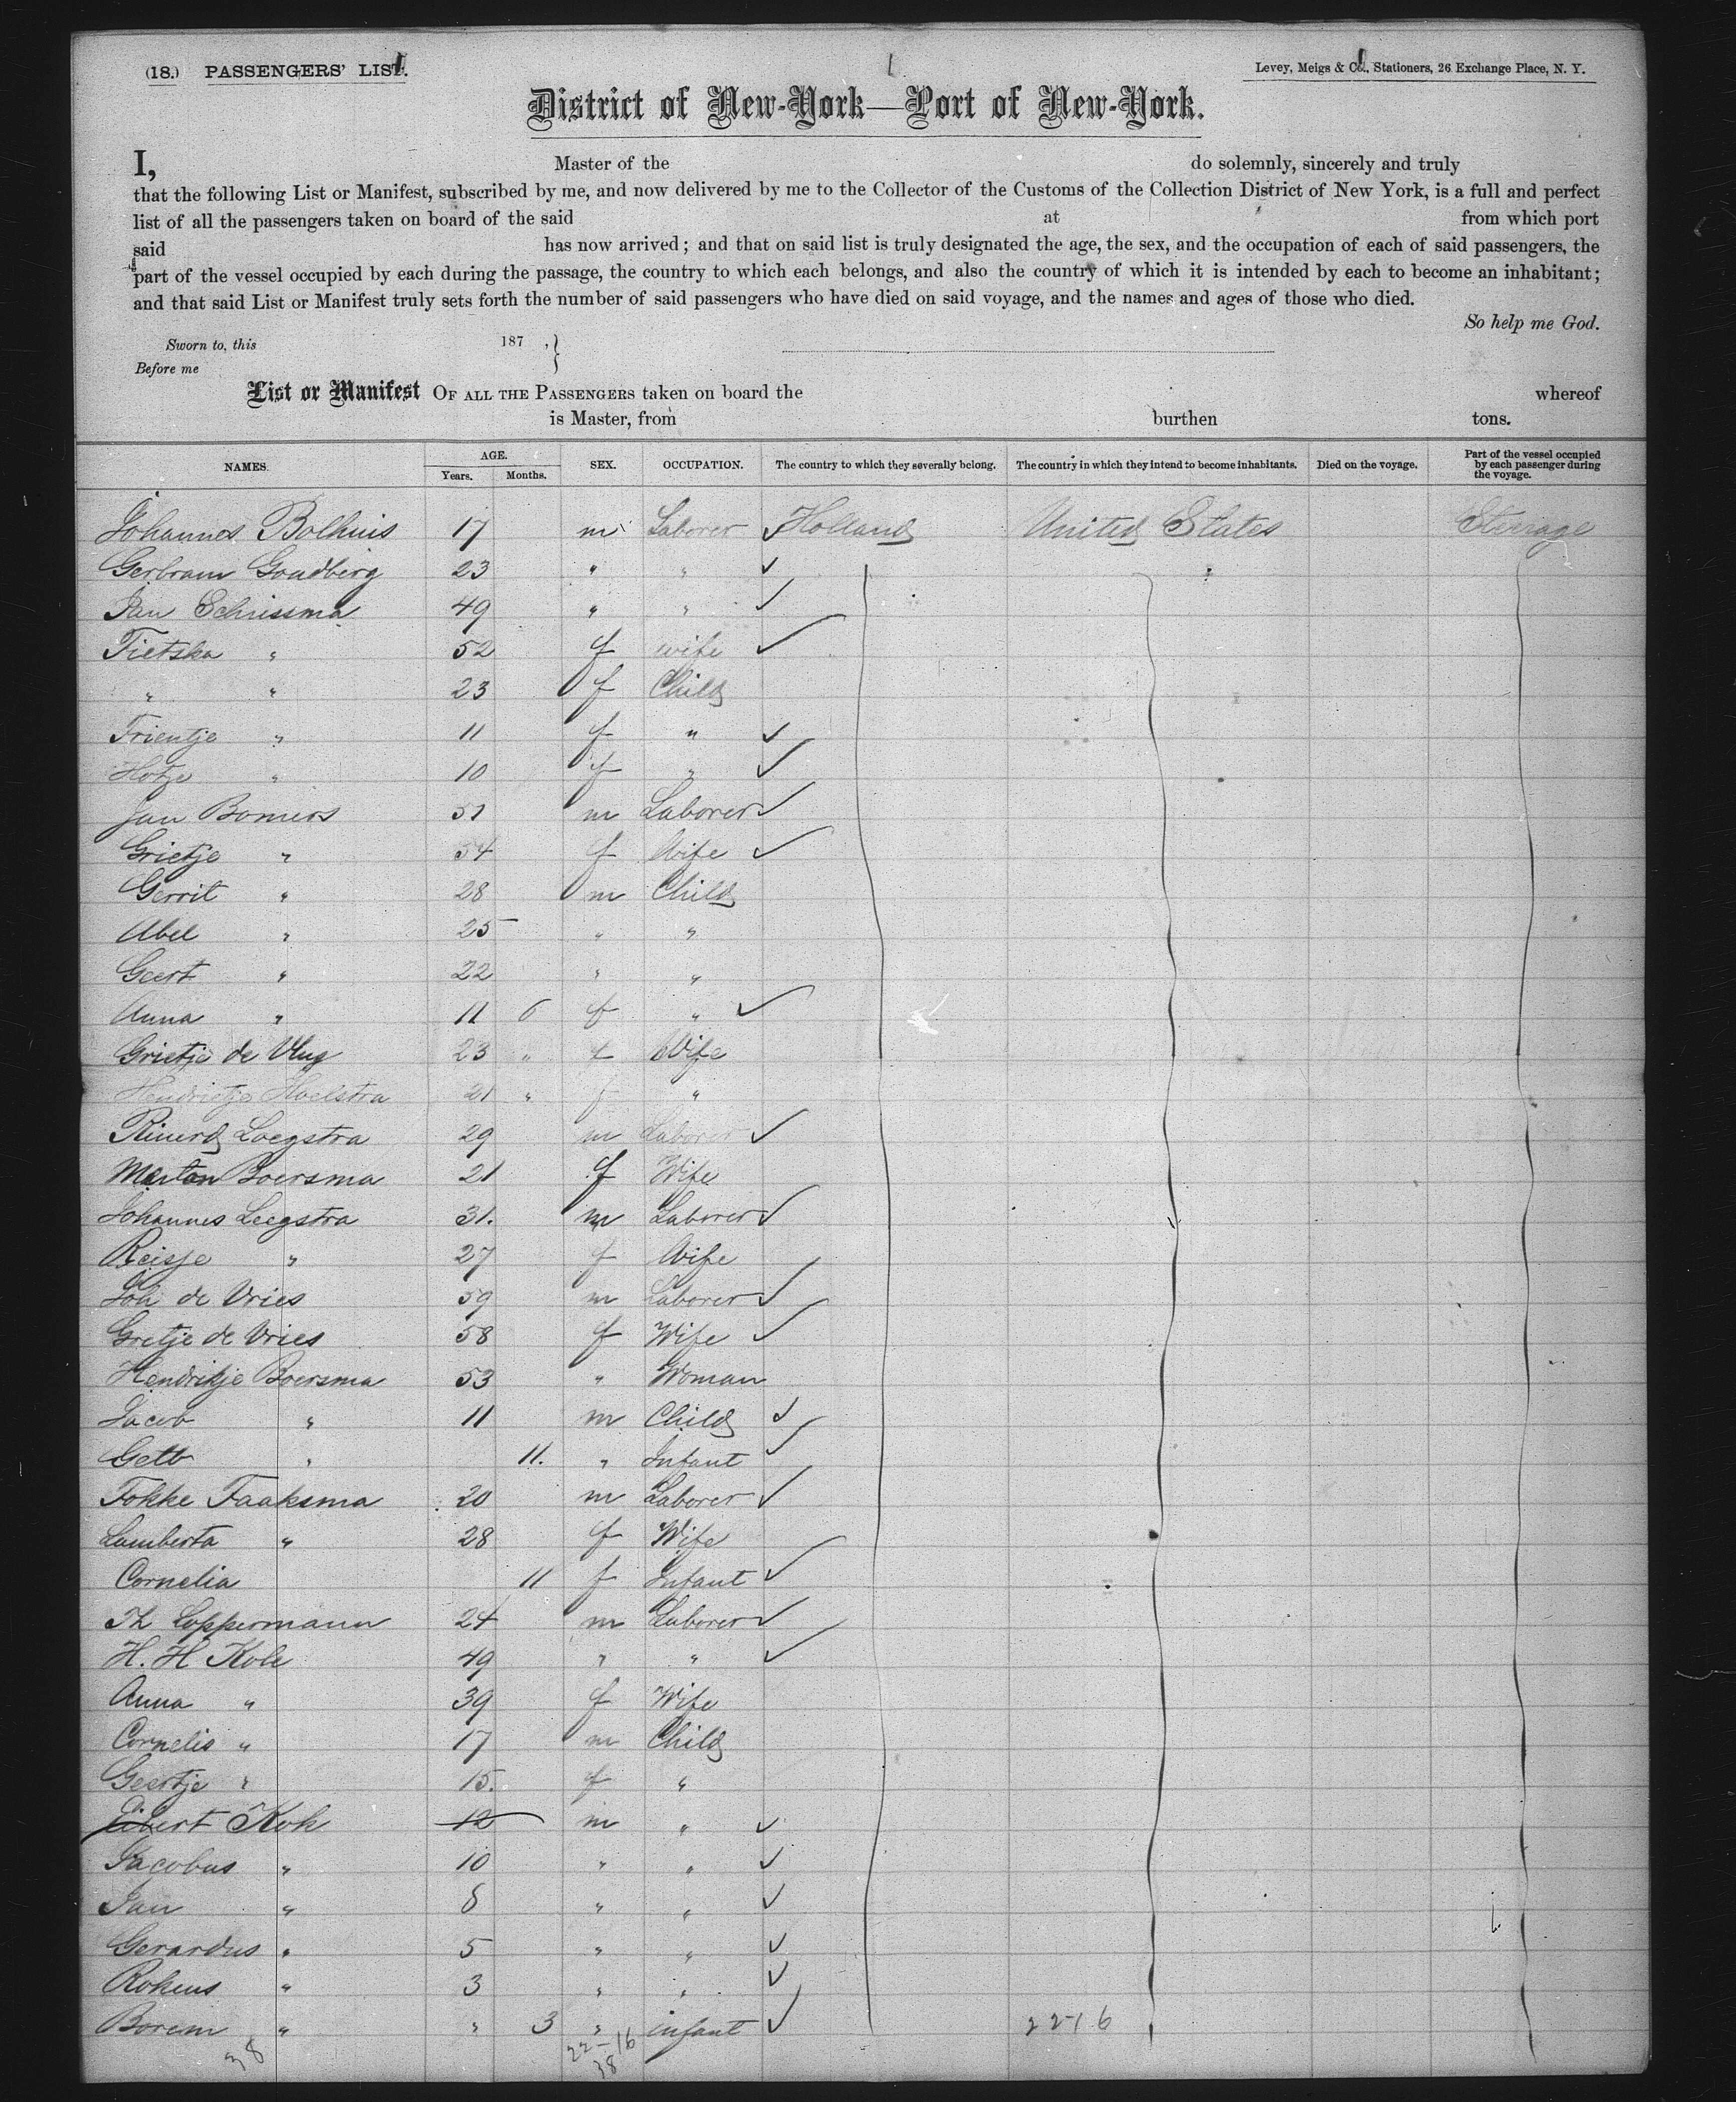 (18.) PASSENGERS' LIST.
Levey, Meigs & Co., Stationers, 26 Exchange Place, N. Y.
District of New-York—Port of New-York.
I, Master of the do solemnly, sincerely and truly
that the following List or Manifest, subscribed by me, and now delivered by me to the Collector of the Customs of the Collection District of New York, is a full and perfect
list of all the passengers taken on board of the said at from which port
said has now arrived; and that on said list is truly designated the age, the sex, and the occupation of each of said passengers, the
part of the vessel occupied by each during the passage, the country to which each belongs, and also the country of which it is intended by each to become an inhabitant;
and that said List or Manifest truly sets forth the number of said passengers who have died on said voyage, and the names and ages of those who died.
So help me God.
Sworn to, this 187 ,}
Before me
List or Manifest OF ALL THE PASSENGERS taken on board the whereof
is Master, from burthen tons.
NAMES. AGE. Years. Months. SEX. OCCUPATION. The country to which they severally belong. The country in which they intend to become inhabitants. Died on the voyage. Part of the vessel occupied by each passenger during the voyage.
Johannes Bolhuis 17 m Laborer ✓ Holland United States Steerage
Gerbram Goudberg 23 " " ✓
Jan Schrissma 49 " " ✓
Tietska " 52 f wife ✓
" " 23 f Child
Trientje " 11 f " ✓
Hotze " 10 f " ✓
Jan Bomers 51 m Laborer ✓
Grietje " 54 f Wife ✓
Gerrit " 28 m Child
Abel " 25 " "
Geert " 22 " "
Anna " 11 6 f " ✓
Grietje de Vlug 23 " f Wife
Hendrietje Hoelstra 21 " f "
Rinerd Loegstra 29 m Laborer ✓
Marton Boersma 21 f Wife
Johannes Leegstra 31. m Laborer ✓
Reisje " 27 f Wife
Joh de Vries 59 m Laborer ✓
Gretje de Vries 58 f Wife ✓
Hendrikje Boersma 53 " Woman
Jacob " 11 m Child ✓
Gelb " 11. " Infant ✓
Fokke Faaksma 20 m Laborer ✓
Lamberta " 28 f Wife
Cornelia 11 f Infant ✓
Th Loppermann 24 m Laborer ✓
H. H Kole " 49 " " ✓
Anna " 39 f Wife
Cornelis " 17 m Child
Geertje " 15. f "
Eibert Kok 12 m " ✓
Jacobus " 10 " " ✓
Jan " 8 " " ✓
Gerardus " 5 " " ✓
Rokus " 3 " " ✓
Borem " " 3 " infant ✓ 22-16
38 22-16
38